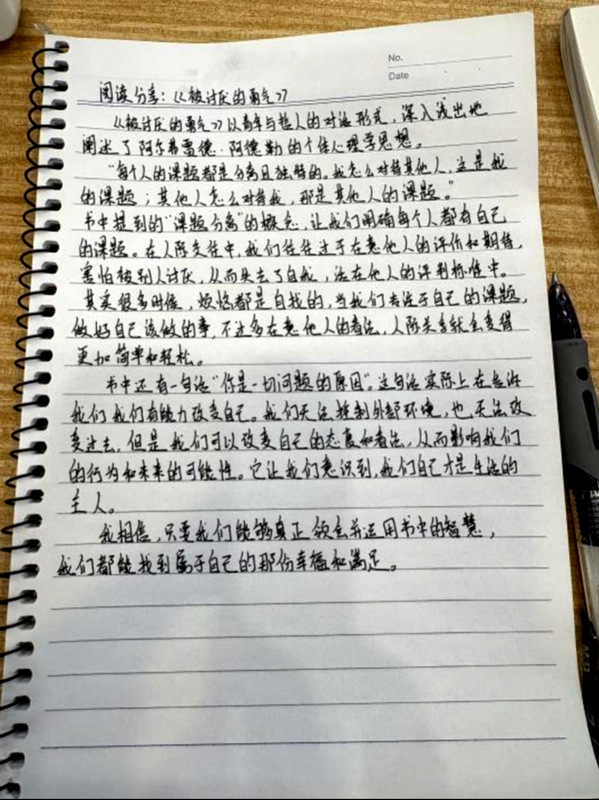 No.
Date
阅读分享：《被讨厌的勇气》
《被讨厌的勇气》以青年与哲人的对话形式，深入浅出地
阐述了阿尔弗雷德·阿德勒的个体心理学思想。
“每个人的课题都是分离且独特的。我怎么对待其他人，这是我
的课题；其他人怎么对待我，那是其他人的课题。”
书中提到的“课题分离”的概念，让我们明确每个人都有自己
的课题。在人际交往中，我们往往过于在意他人的评价和期待，
害怕被别人讨厌，从而失去了自我，活在他人的评判标准中。
其实很多时候，烦恼都是自找的，当我们专注于自己的课题，
做好自己该做的事，不过多在意他人的看法，人际关系就会变得
更加简单和轻松。
书中还有一句话“你是一切问题的原因”。这句话实际上在告诉
我们我们有能力改变自己。我们无法控制外部环境，也无法改
变过去，但是我们可以改变自己的态度和看法，从而影响我们
的行为和未来的可能性。它让我们意识到，我们自己才是生活的
主人。
我相信，只要我们能够真正领会并运用书中的智慧，
我们都能找到属于自己的那份幸福和满足。